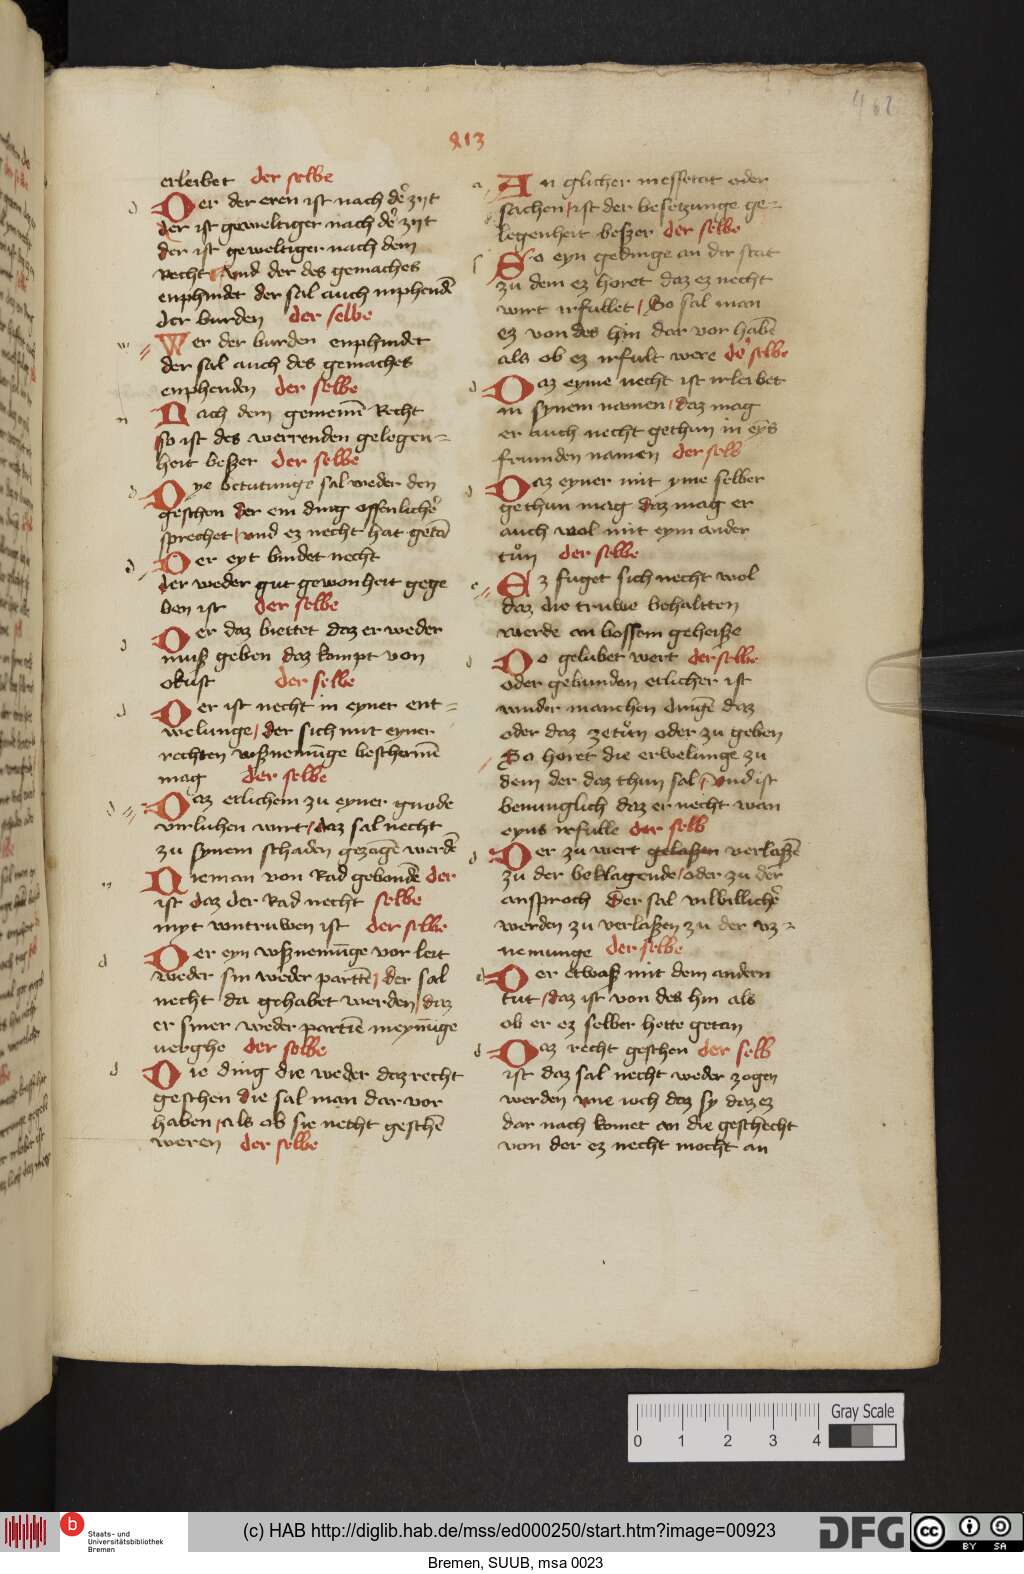 462
813
erleibet der selbe
Der der eren ist nach dē zijt
der ist geweltiger nach dē zyt
der ist geweltiger nach dem
Recht / Vnd der des gemaches
enphindet der sal auch inphendē
der burden der selbe
Wer der burden enphindet
der sal auch des gemaches
enphenden der selbe
Nach dem gemeinē Recht
so ist des werrenden gelegen-
heit beszer der selbe
Dye betutunge sal weder den
geschen der ein ding offenlichē
sprechet / vnd ez necht hat getā
Der eyt bindet necht
der weder gut gewonheit gege
ben ist der selbe
Der daz biettet daz er weder
musz geben daz kompt von
der selbe
Der ist necht in eyner ent-
welunge / der sich mit eyner
rechten vsznemūge beschermē
mag der selbe
Daz etlichem zu eyner gnode
virluhen wirt / daz sal necht
zu synem schaden gezogē werdē
Nieman von Rad gebondē der
ist daz der Rad necht selbe
myt vntruwen ist der selbe
Der eyn vsznemūge vor leit
weder sin weder partē / der sal
necht da gehabet werden / daz
er siner weder partiē meynūge
veryhe der selbe
Die ding die weder daz recht
geschen die sal man dar vor
haben / als ob sie necht geschē
weren der selbe
An glicher messetat oder
sachen / ist der besetzunge ge-
legenheit beszer der selbe
So eyn gedinge an der stat
zu dem ez horet daz ez necht
wirt irfullet / So sal man
ez von des hin dar vor habē
als ob ez irfult were der selbe
Daz eyme necht ist irleibet
in synem namen / daz mag
er auch necht gethun in eyns
frunden namen der selb
Daz eyner mit yme selber
gethun mag daz mag er
auch wol mit eym ander
tůn der selbe
Ez fuget sich necht wol
daz die truwe behaltten
werde an bossem geheisze
So gelubet wert der selbe
oder gebunden etlicher ist
vnder manchen dingē daz
oder daz zetůn oder zu geben
So horet die erwelunge zu
dem der daz thun sal / Vnd ist
benunglich daz er necht wan
eyns irfulle der selb
Der zu wert gelaszen verlaszē
zu der beklagende / oder zu der
ansproch Der sal vilbillichē
werden zu verlaszen zu der vz-
nemunge der selbe
Der etwasz mit dem andern
tut / daz ist von des hin als
ob er ez selber hette getan
Daz recht geschen der selb
ist daz sal necht weder zogen
werden vne ioch daz sy daz ez
dar nach komet an die geschecht
von der ez necht mocht an
0 1 2 3 4
Gray Scale
Staats- und
Universitätsbibliothek
Bremen
(c) HAB http://diglib.hab.de/mss/ed000250/start.htm?image=00923
DFG
cc
BY SA
Bremen, SUUB, msa 0023